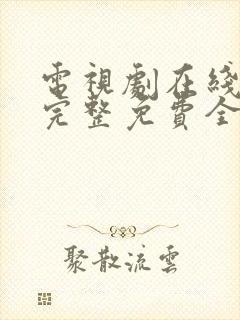 電視劇在綫
完整免費全
聚散流雲